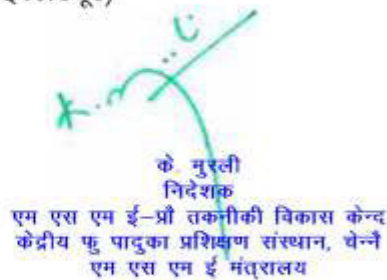 के. मुरली
निदेशक
एम एस एम ई-प्रौ तकनीकी विकास केन्द
केंद्रीय फु पादुका प्रशिक्षण संस्थान, चेन्नै
एम एस एम ई मंत्रालय